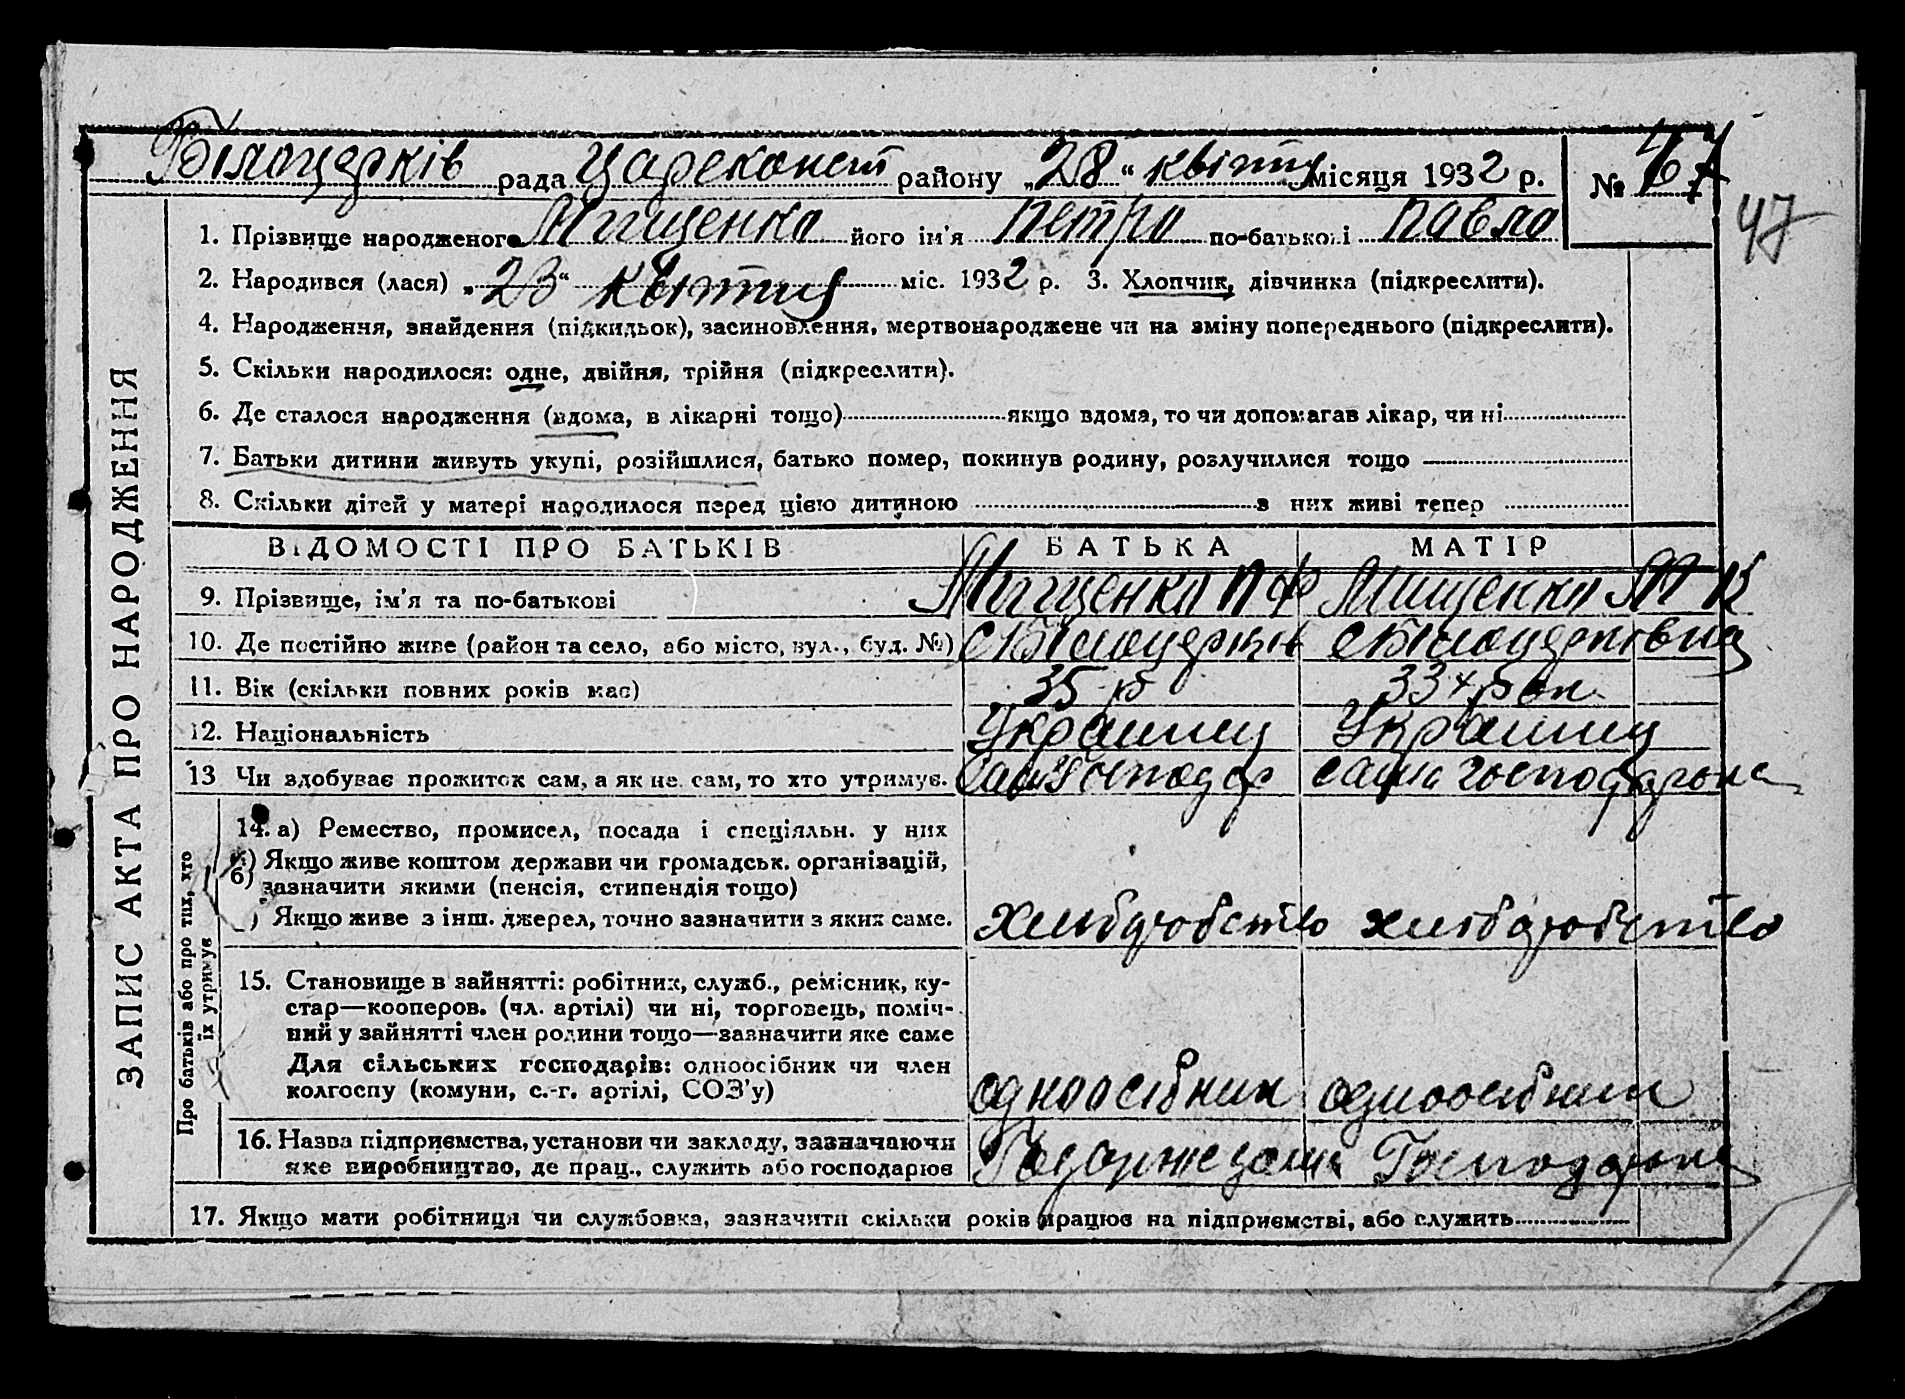 Білоцерків рада Цареконст району „28“ квітня місяця 1932 р. № 47
47
1. Прізвище народженого Мищенко його ім'я Петро по-батькові Павло
2. Народився (лася) „23“ квітня міс. 1932 р. 3. Хлопчик, дівчинка (підкреслити).
4. Народження, знайдення (підкидьок), засиновлення, мертвонароджене чи на зміну попереднього (підкреслити).
5. Скільки народилося: одне, двійня, трійня (підкреслити).
6. Де сталося народження (вдома, в лікарні тощо) якщо вдома, то чи допомагав лікар, чи ні
7. Батьки дитини живуть укупі, розійшлися, батько помер, покинув родину, розлучилися тощо
8. Скільки дітей у матері народилося перед цією дитиною з них живі тепер
ЗАПИС АКТА ПРО НАРОДЖЕННЯ
ВІДОМОСТІ ПРО БАТЬКІВ БАТЬКА МАТІР
9. Прізвище, ім'я та по-батькові Мищенко П Ф Мищенко М К
10. Де постійно живе (район та село, або місто, вул., буд. №) с Білоцерків с Білоцерківка
11. Вік (скільки повних років має) 35 р 33
12. Національність Украинец Украинец
13 Чи здобуває прожиток сам, а як не сам, то хто утримує. Сам Господар сама господарює
Про батьків або про тих, хто їх утримує
14. а) Ремество, промисел, посада і спеціяльн. у них
б) Якщо живе коштом держави чи громадськ. організацій,
зазначити якими (пенсія, стипендія тощо)
) Якщо живе з інш. джерел, точно зазначити з яких саме. хлібдробство хлібдробство
15. Становище в зайнятті: робітник, служб., ремісник, ку-
стар—кооперов. (чл. артілі) чи ні, торговець, поміч-
ний у зайнятті член родини тощо—зазначити яке саме
Для сільських господарів: одноосібник чи член
колгоспу (комуни, с.-г. артілі, СОЗ'у) одноосібник одноосібник
16. Назва підприємства, установи чи закладу, зазначаючи
яке виробництво, де прац., служить або господарює Господарює
17. Якщо мати робітниця чи службовка, зазначити скільки років працює на підприємстві, або служить